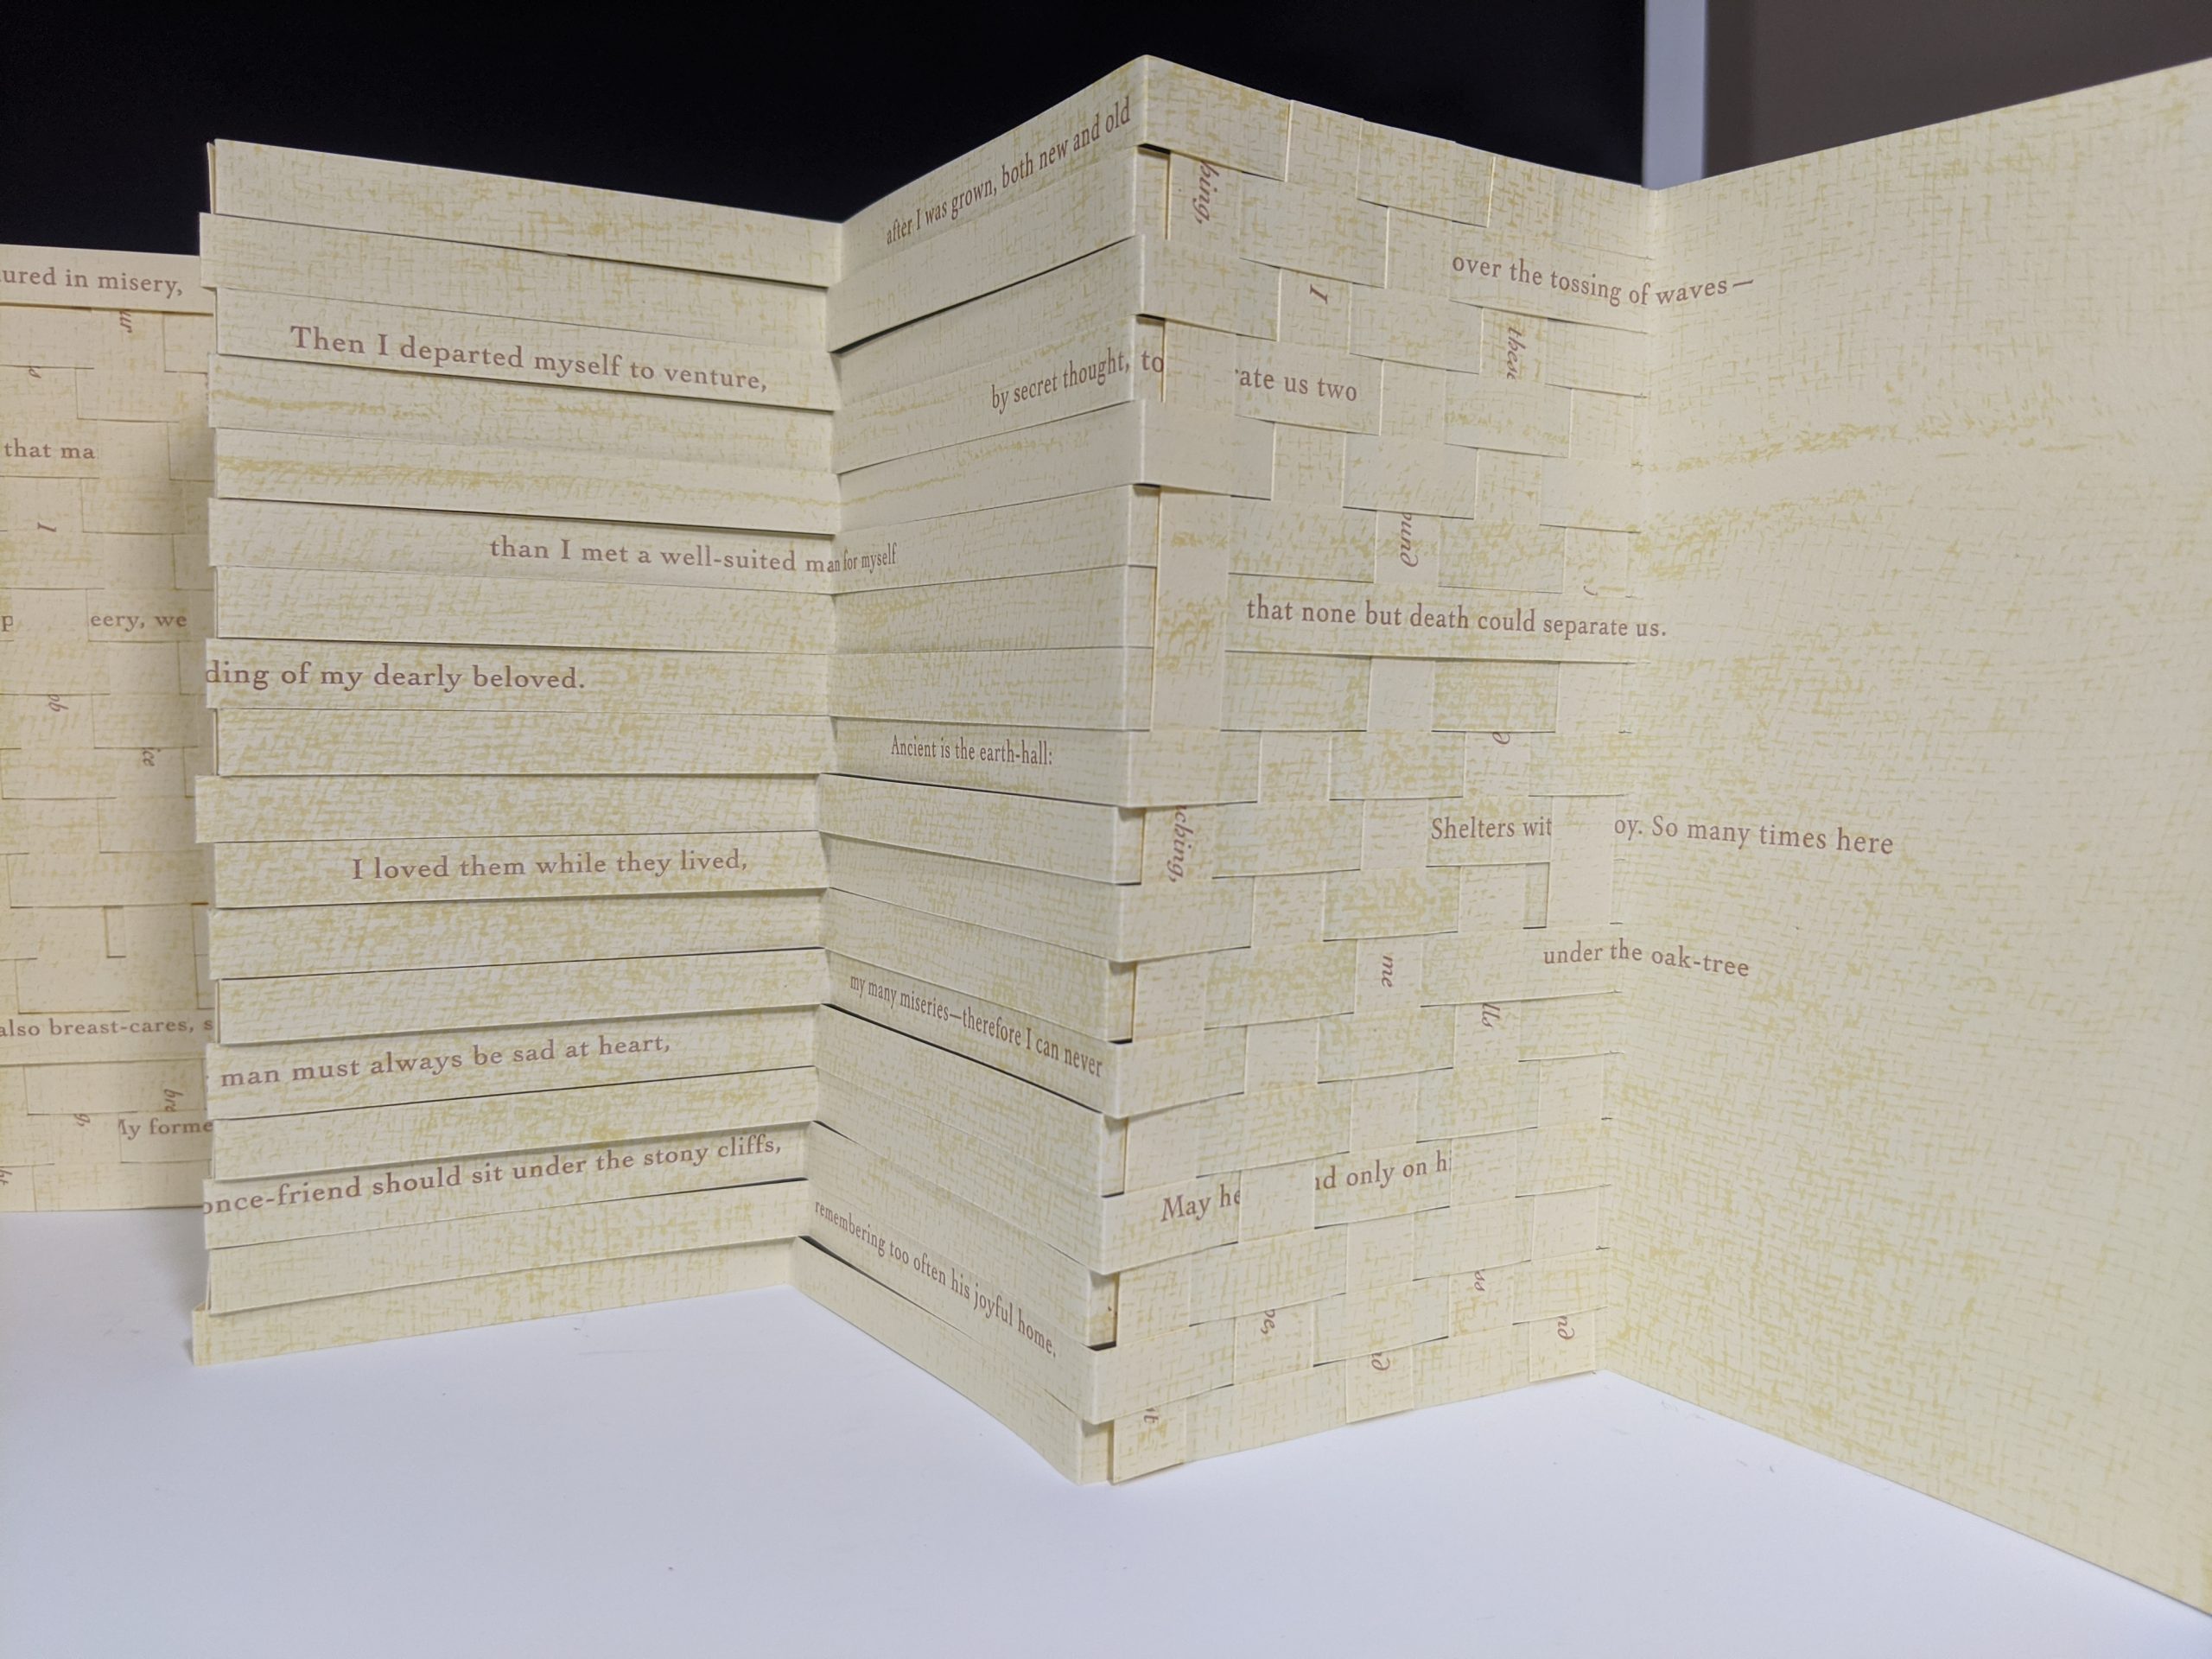 ured in misery,
that ma
I
eery, we
also breast-cares, s
ly forme
Then I departed myself to venture,
than I met a well-suited man for myself
ding of my dearly beloved.
I loved them while they lived,
man must always be sad at heart,
once-friend should sit under the stony cliffs,
after I was grown, both new and old
by secret thought, to
ate us two
Ancient is the earth-hall:
my many miseries—therefore I can never
remembering too often his joyful home.
bing,
I
over the tossing of waves—
these
ound
that none but death could separate us.
ching,
Shelters wit oy. So many times here
under the oak-tree
me
lls
May he nd only on hi
ss
pe,
nd